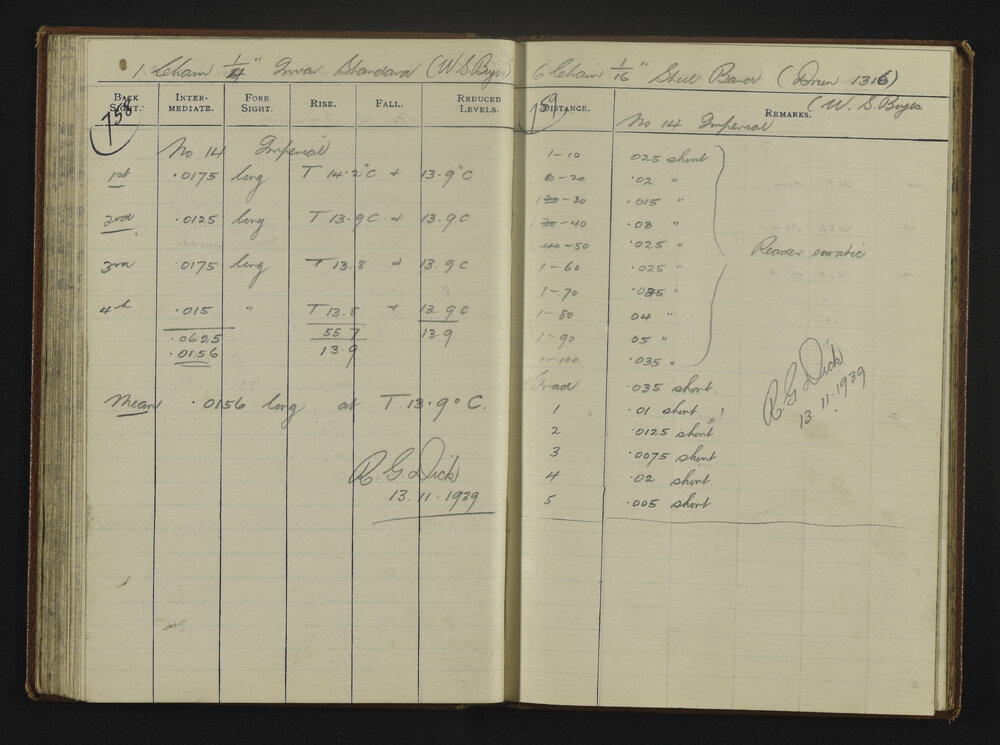 1 Chain 1/4" Invar Standard (W. S. Boyes
BACK SIGHT. INTER-MEDIATE. FORE SIGHT. RISE. FALL. REDUCED LEVELS.
758
No 14 Imperial
1st .0175 long T. 14.2°C + 13.9°C
2nd .0125 long T 13.9 C + 13.9 C
3rd .0175 long T 13.8 + 13.9 C
4th .015 " T 13.8 + 13.9 C
.0625 55.7 13.9
.0156 13.9
Mean .0156 long at T 13.9° C.
R. G. Dick
13.11.1939
6 Chain 1/16" Steel Band (Drum 1316)
(W. S. Boyes
759
DISTANCE. REMARKS.
No 14 Imperial
1-10 .025 short
10-20 .02 "
20-30 .015 "
30-40 .03 "
40-50 .025 "
Reader erratic
1-60 .025 "
1-70 .035 "
1-80 04 "
1-90 05 "
1-100 .035 "
Grad .035 short.
1 .01 short
2 .0125 short
3 .0075 short.
4 .02 short
5 .005 short
R. G. Dick
13.11.1939